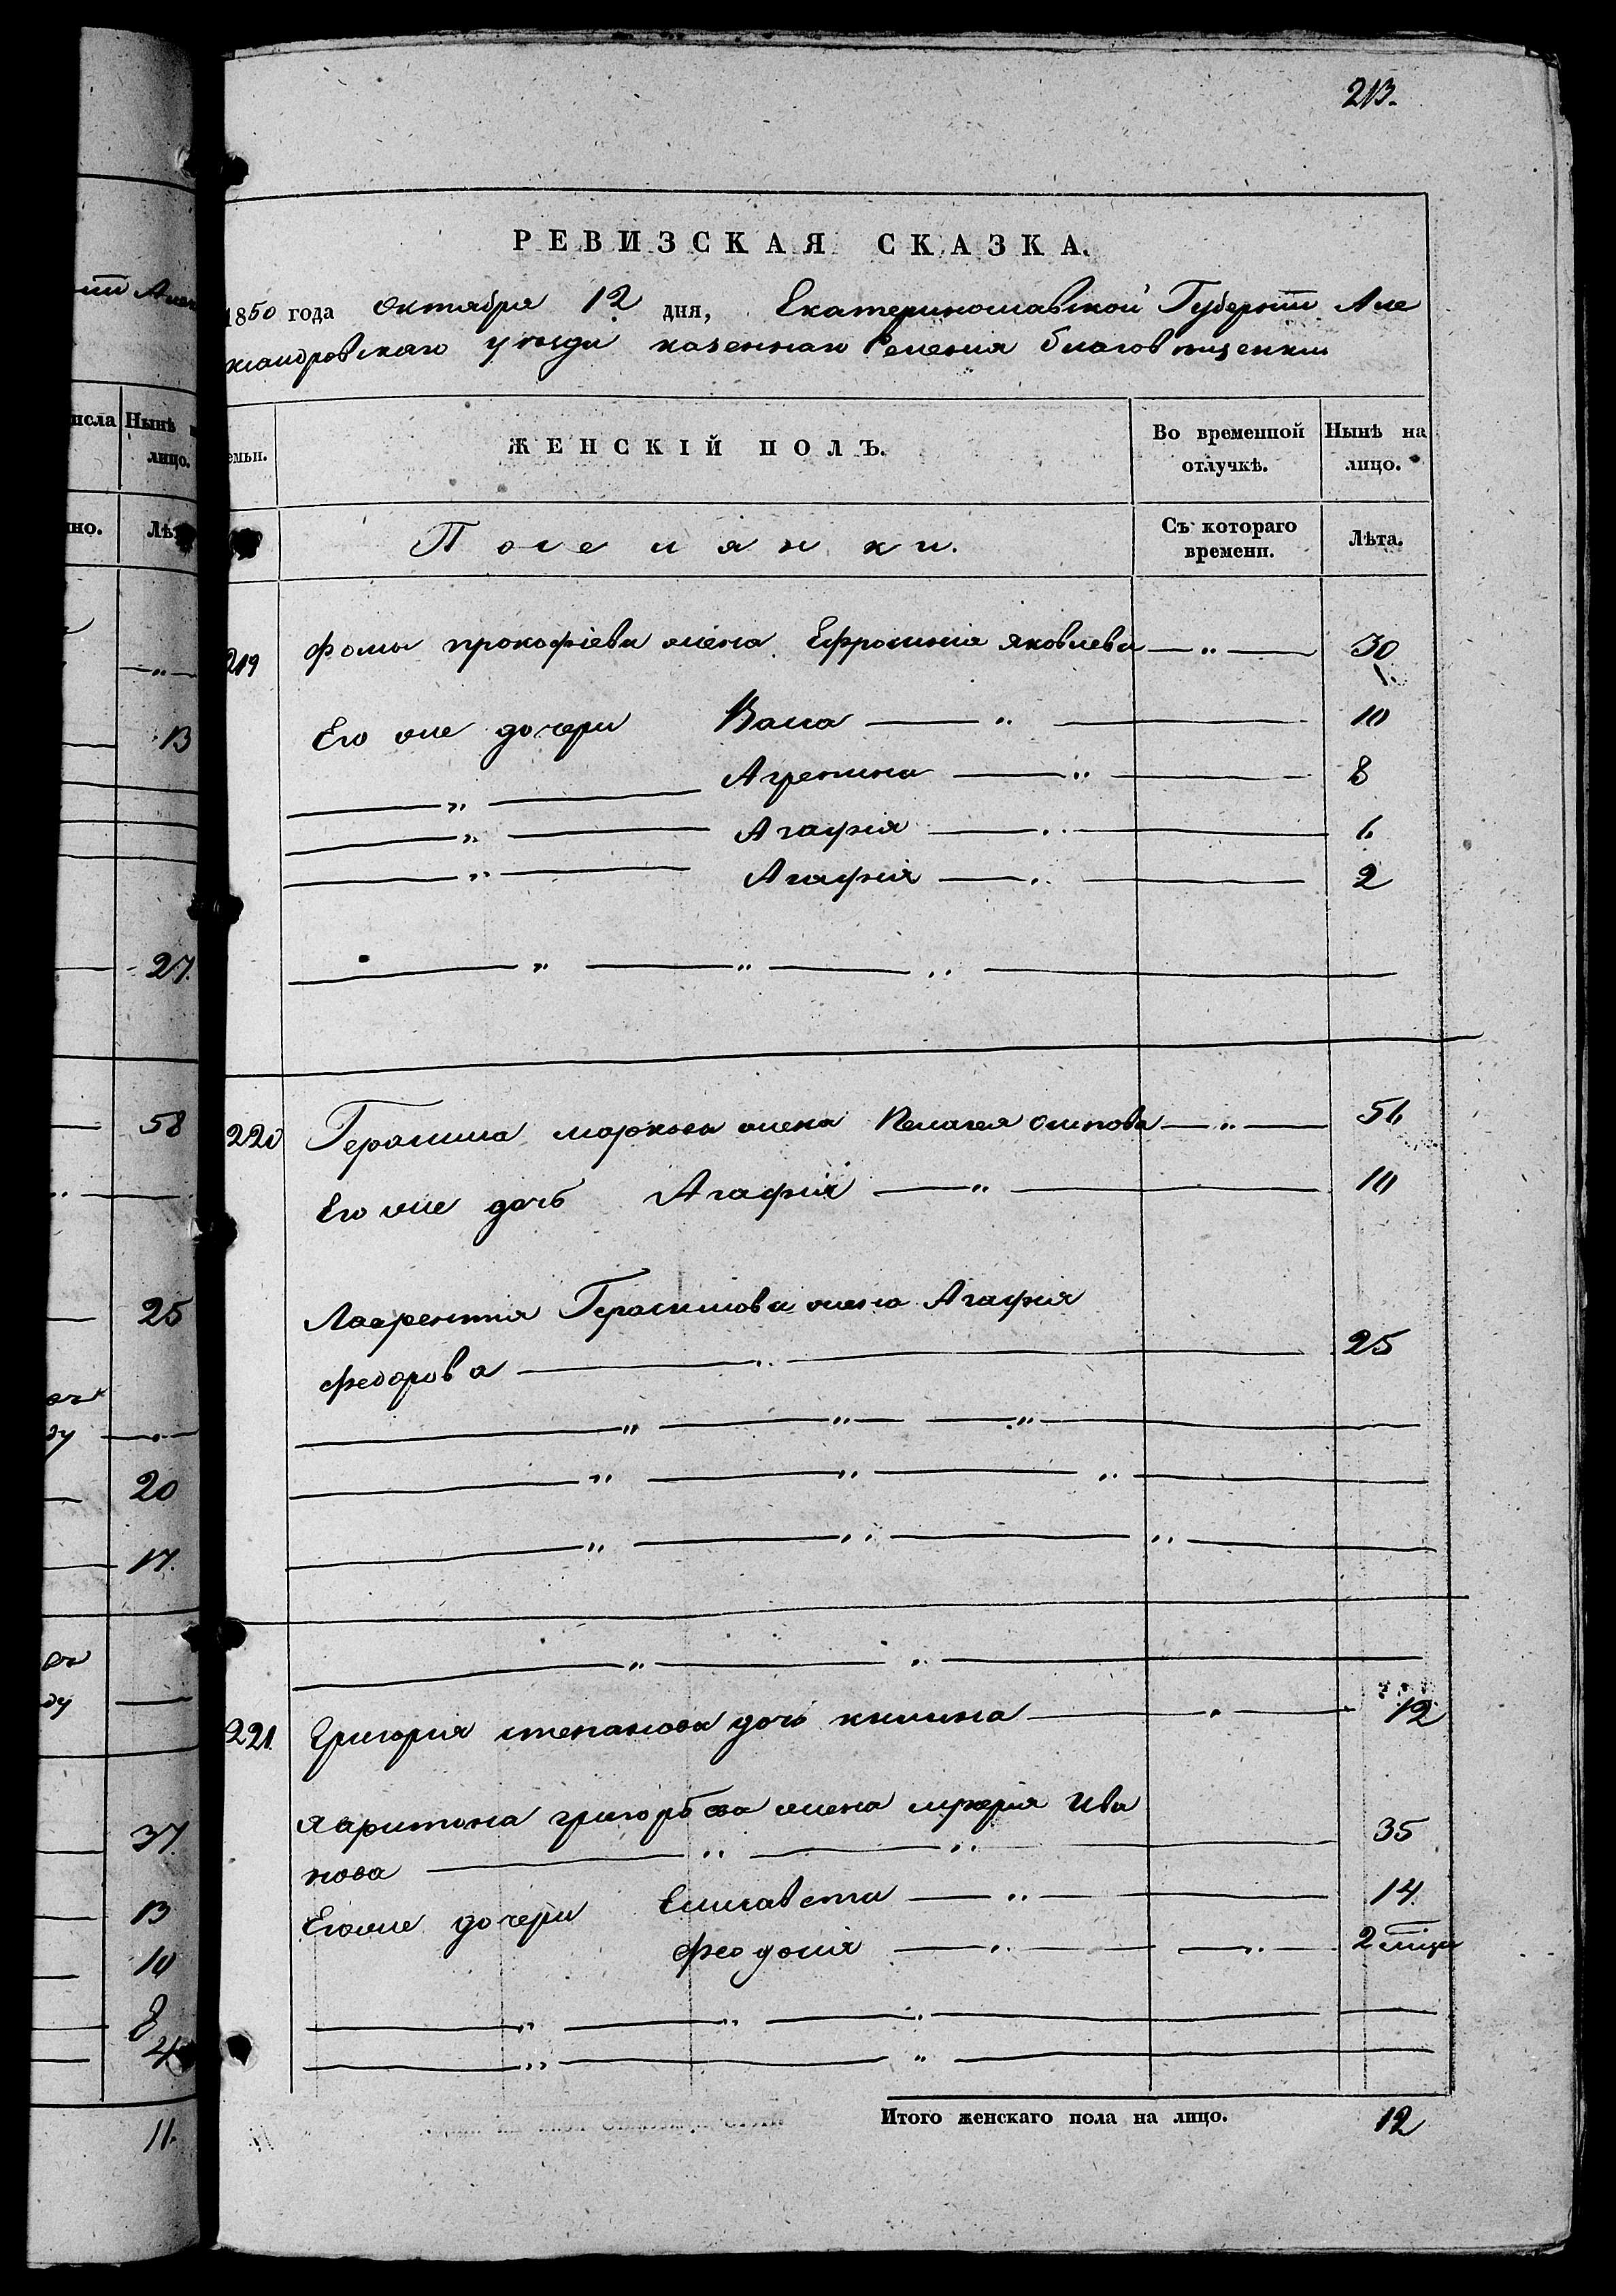 213.
РЕВИЗСКАЯ СКАЗКА.
1850 года октября 12 дня, Екатеринославской Губернiи Але
ксандровскаго уѣзда казеннаго Селенія благовѣщенки
емьи. ЖЕНСКІЙ ПОЛЪ. Во временной отлучкѣ. Нынѣ на лицо.
Поселянки. Съ котораго времени. Лѣта.
219 Фомы прокофіева жена Ефросинія яковлева — " — 30
Его же дочери Васа — " — 10
— " — Агрепина — " — 8
— " — Агафія — " — 6
— " — Агафія — " — 2
— " — " — " —
220 Герасима маркова жена Пелагея осипова — " — 56
Его же дочь Агафія — " — 10
Лаврентія Герасимова жена Агафія
федорова — " — 25
— " — " — " —
— " — " — " —
— " — " — " —
— " — " —
221. Григорія степанова дочь — " — 12
Харитона григорьева жена Ива
нова — " — " — 35
Его же дочери Елисавета — " — 14.
Феодосія — " — " — 2 мѣсяц
— " — " — " —
— " — " —
Итого женскаго пола на лицо. 12
исла Нынѣ н
лицо.
но. Лѣт
— " —
13
27.
58
25
20
17.
37.
13
10
8
4
11.